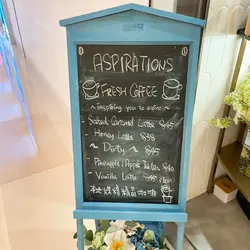 ASPIRATIONS
FRESH COFFEE
~ inspiring you to explore ~
- Salted Caramel Latte $45
- Honey Latte $39
~ Dirty ~ $45
- Pineapple / Apple $40
- Vanilla Latte $45